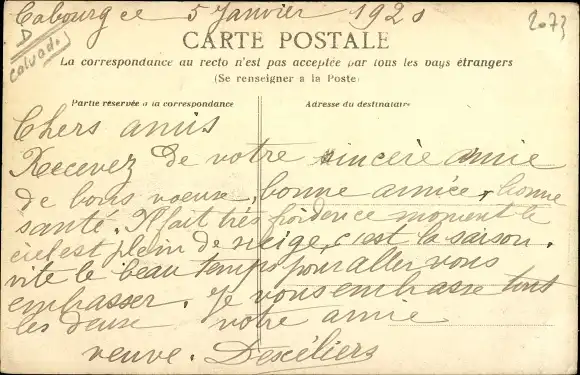 Cabourg ce 5 Janvier 1921
2073
D
Calvados
CARTE POSTALE
La correspondance au recto n'est pas acceptée par tous les pays étrangers
(Se renseigner à la Poste)
Partie réservée à la correspondance
Adresse du destinataire
Chers amis
Recevez de votre sincère amie
de bons voeux, bonne année, bonne
santé. Il fait très froid en ce moment le
ciel est plein de neige, c'est la saison.
vite le beau temps pour aller vous
embrasser. Je vous embrasse tous
les deux votre amie
veuve. Descéliers